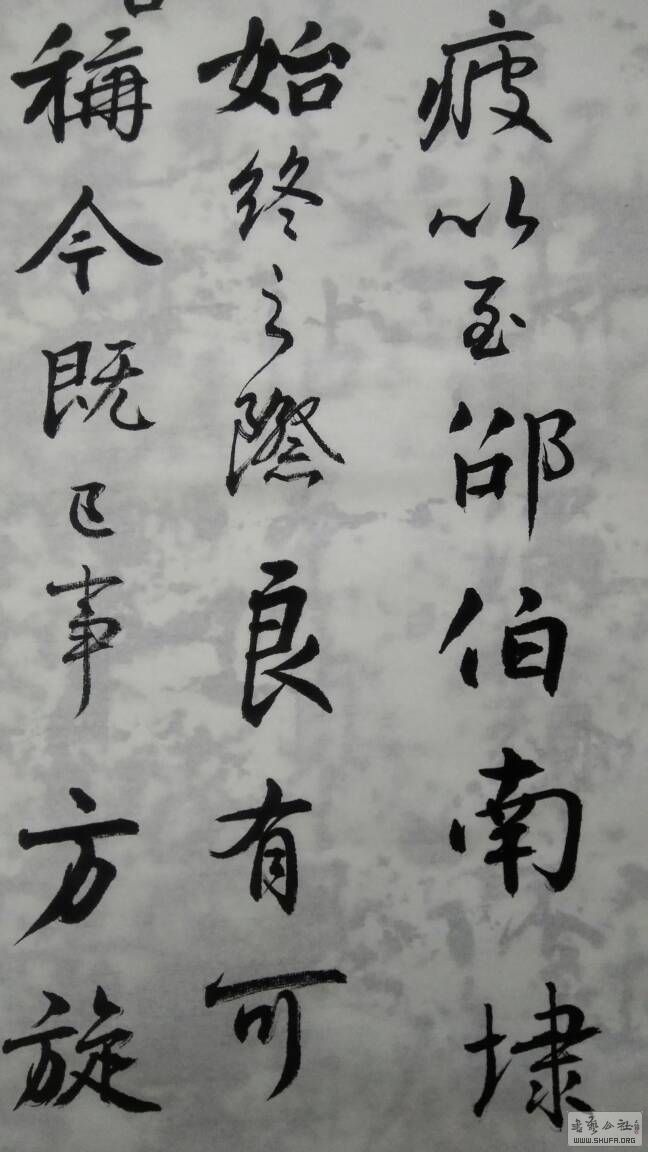 疲以至邵伯南埭
始终之際良有可
稱今既已事方旋
WWW.SHUFA.ORG